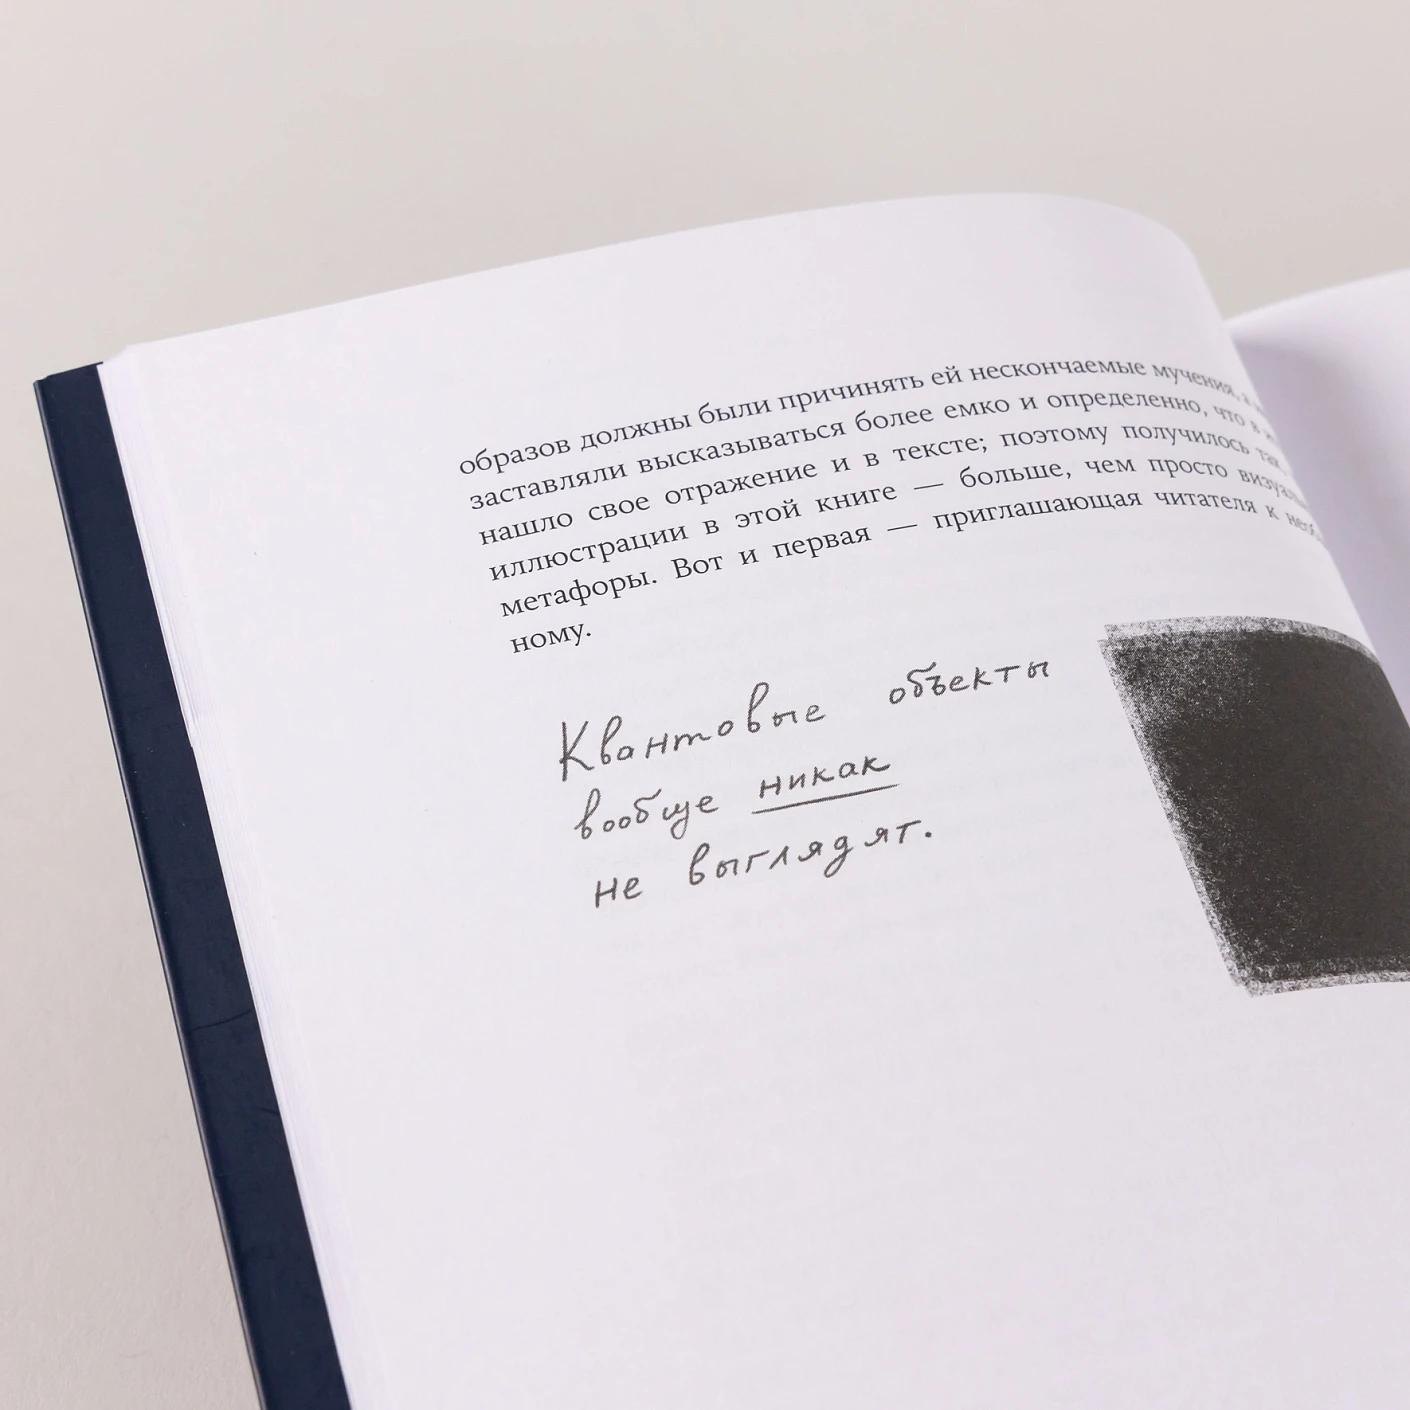 образов должны были причинять ей нескончаемые мучения, а
заставляли высказываться более емко и определенно, что в
нашло свое отражение и в тексте; поэтому получилось так,
иллюстрации в этой книге — больше, чем просто
метафоры. Вот и первая — приглашающая читателя к
ному.
Квантовые объекты
вообще никак
не выглядят.